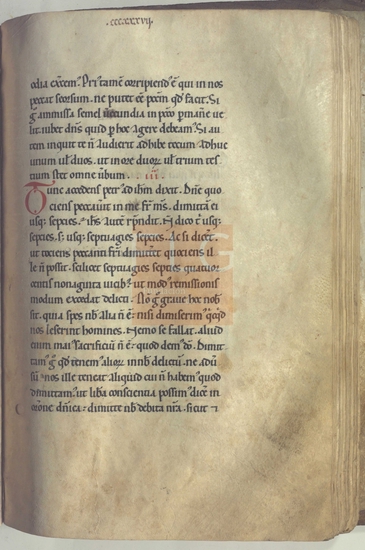 .cccxxxvij.
odia exẽm. Pri tamẽ corripiend' ẽ qui in nos
peccat seorsum. ne putet eẽ pccm qd facit. Si
g amissa semel uerecundia in pcco pmanẽ ue
lit. iubet dns quid p hoc agere debeam. Si au
tem inquit te ñ audierit. adhibe tecum adhuc
unum ul duos. ut in ore duor ul trium tes
tium stet omne ubum.
Tunc accedens petr ad ihm dixit. Dne quo
ciens peccauit in me fr ms. dimittã ei
usq; sepcies. ihs aute rndit. ñ dico t usq;
sepcies. s; usq; septuagies sepcies. Ac si dicet.
ut tociens peccanti fri dimittet quociens il
le ñ possit. scilicet septuagies sepcies quatuor
centis nonaginta uicib; ut mod remissionis
modum excedat delicti. Nõ g graue hoc nob
sit. quia spes nb alia ñ ẽ nisi dimiserim qcqd
nos leserint homines. Nemo se fallat. aliud
enim mai sacrificiũ ñ ẽ quod dem dõ. Dimit
tam g qd tenem alior in nb delictũ. ne
nos ille teneat aliquid cui ñ habem quod
dimittam. ut liba conscientia possim dice in
orõne dñica. dimitte nb debita nra. sicut 7